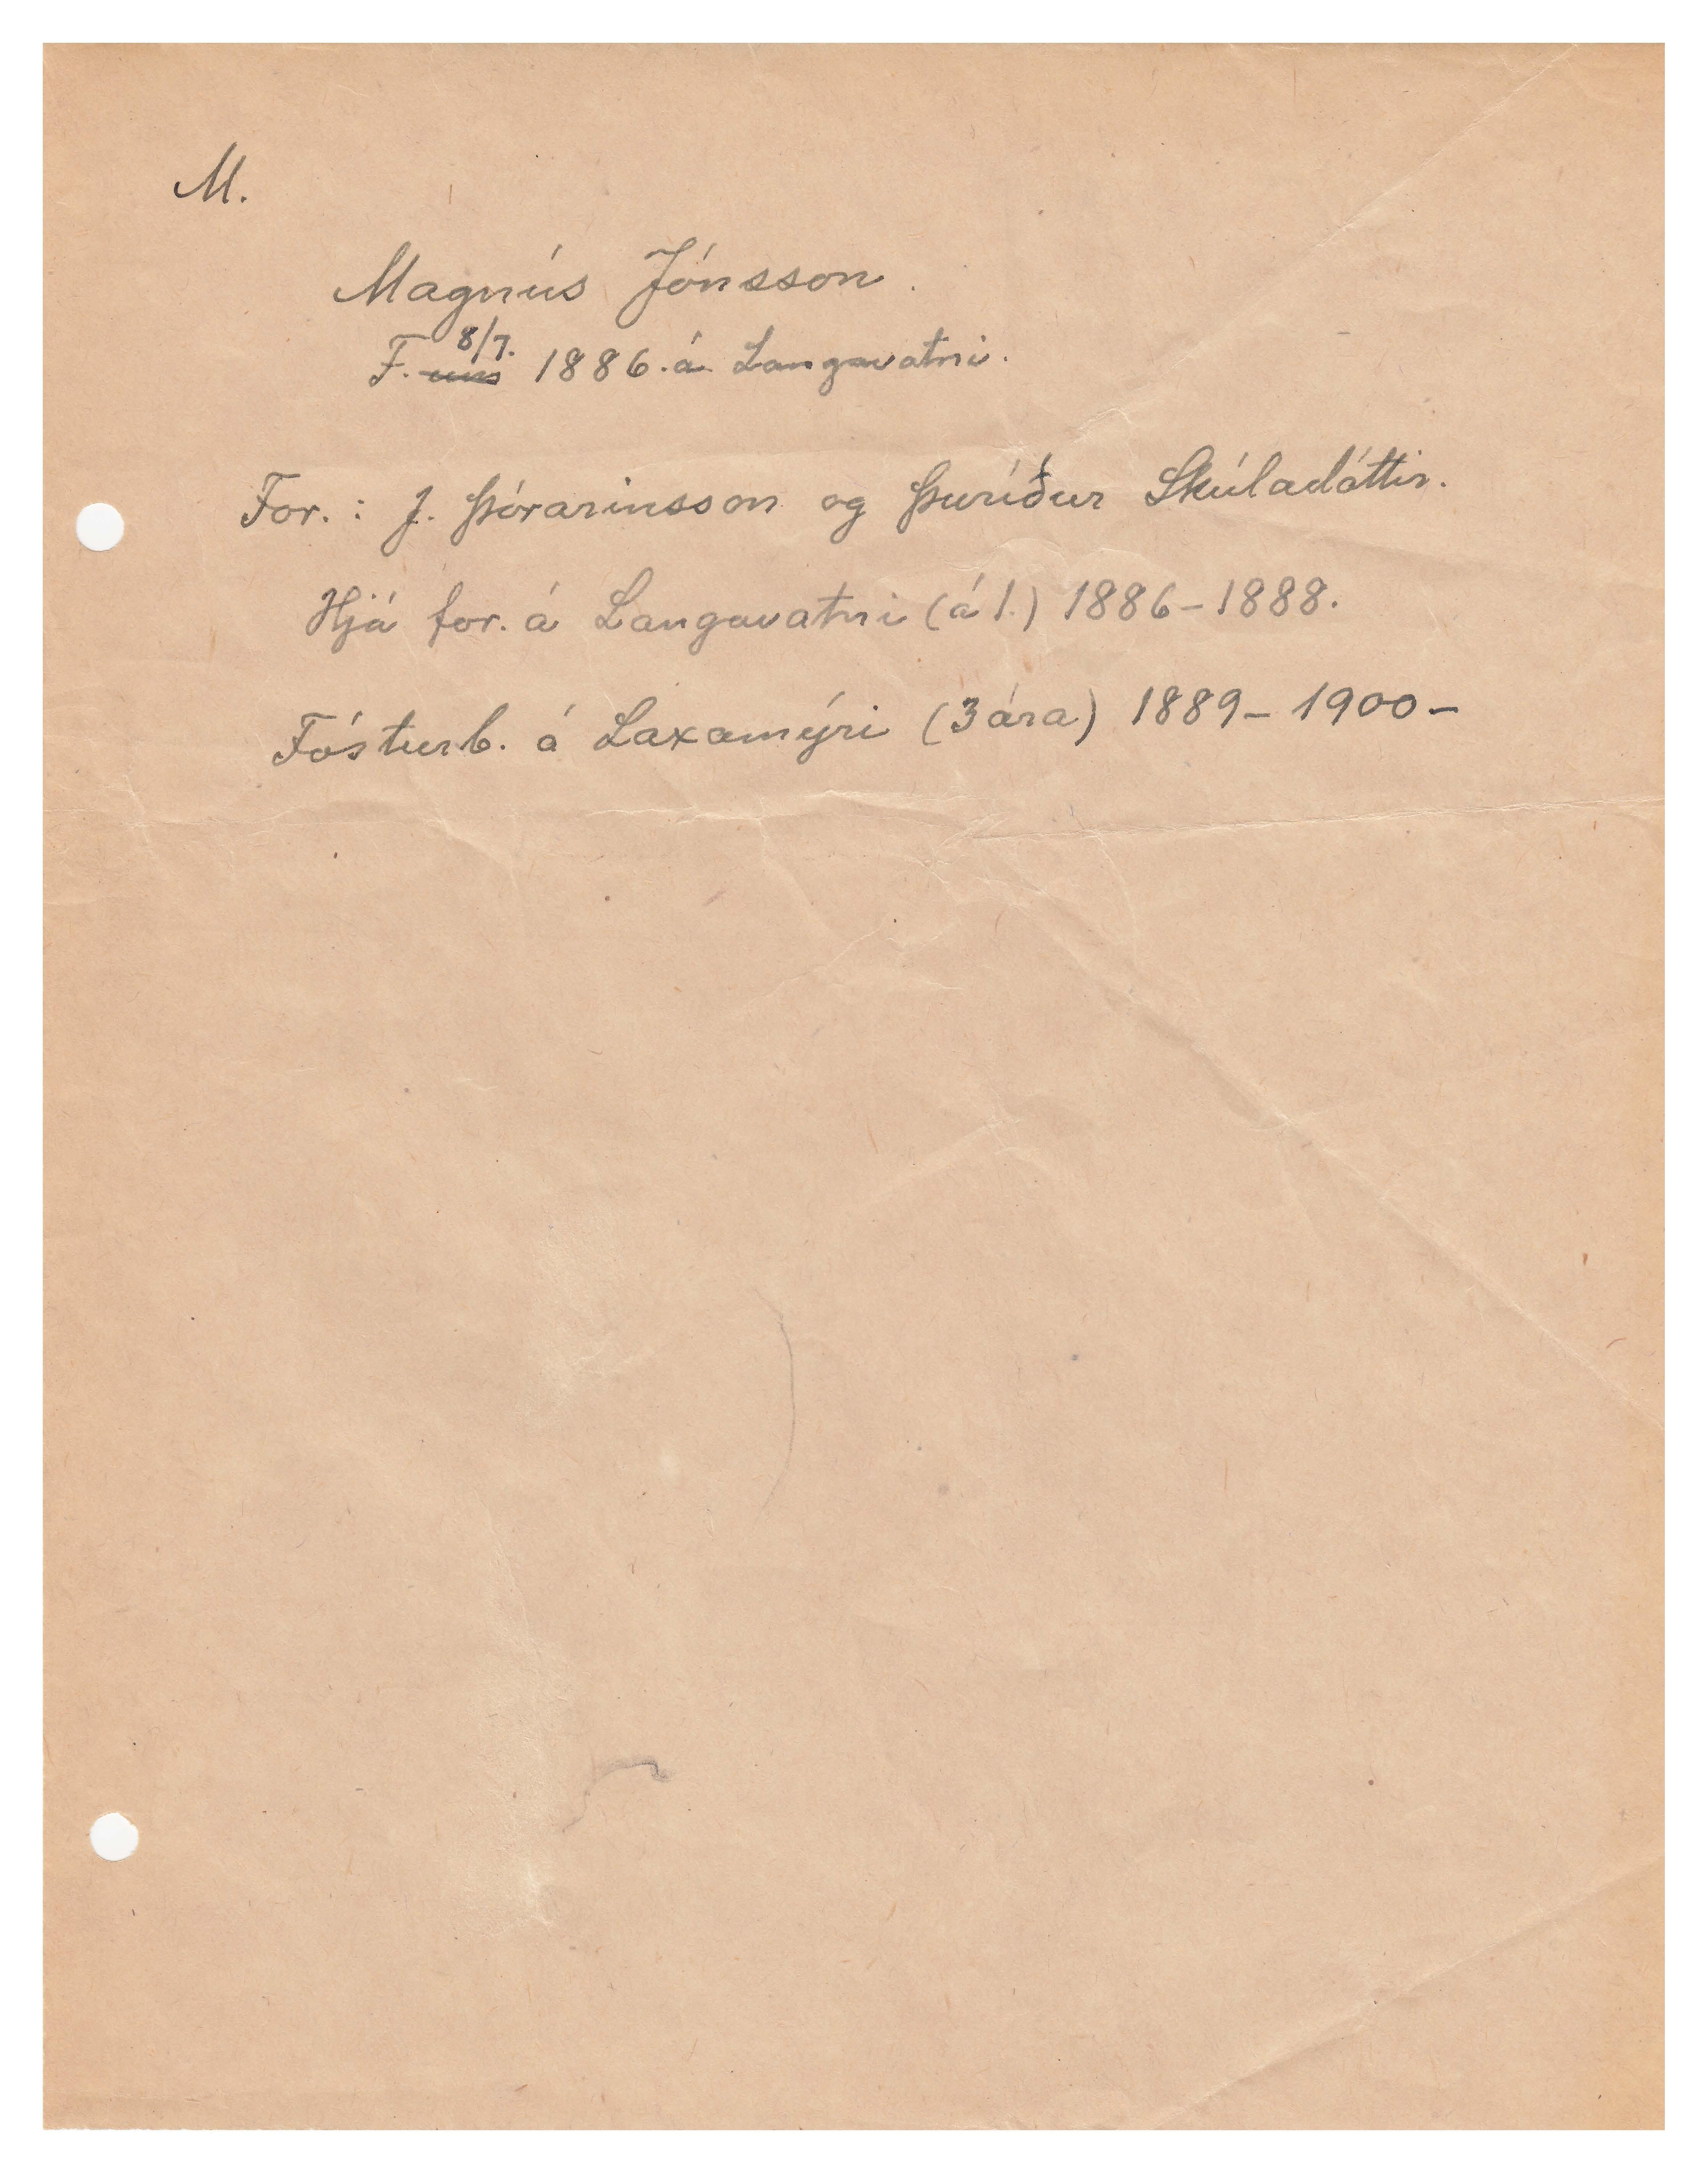 M.
Magnús Jónsson.
F. 8/7. 1886. á Langavatni.
For.: J. Þórarinsson og Þuríður Skúladóttir.
Hjá for. á Langavatni (á 1.) 1886-1888.
Fósturb. á Laxamýri (3 ára) 1889-1900-